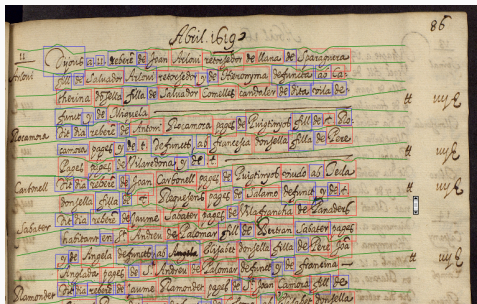 Abril 1619
86
11
Dijous a 11 rebere de Joan Arloni retorsedor de llana de Sparaguera
Arloni
fill de Salvador Arloni retorsedor y de Hieronyma defuncta ab Ca-
therina donsella filla de Salvador Comelles candaler de dita vila de
functa y de Miquela
Rocamora
Dit dia rebere de Antoni Rocamora pages de Puigtinyos fill de t. Ro-
camora pages y de t. defuncts ab Francesca donsella filla de Pere
Pages pages de Vilaredona y de t.
Carbonell
Dit dia rebere de Joan Carbonell pages de Puigtinyos viudo ab
donsella filla de t. pages de Salamo defunct y de t.
Sabater
Dit dia rebere de Jaume Sabater pages de Vilafrancha de Panades
habitant en St Andreu de Palomar fill de Bertran Sabater pages
y de Angela defuncts ab Elisabet donsella filla de Pere Joan
Anglada pages de S. Andreu de Palomar defunct y de
Plamonder
Dit dia rebere de Jaume Plamonder pages de S. Joan fill de